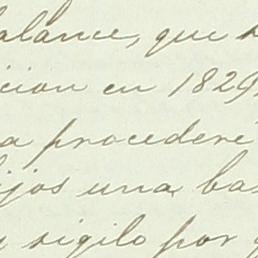 alance, que
icion en 1829
a procederé
ijos una ba
sigilo por